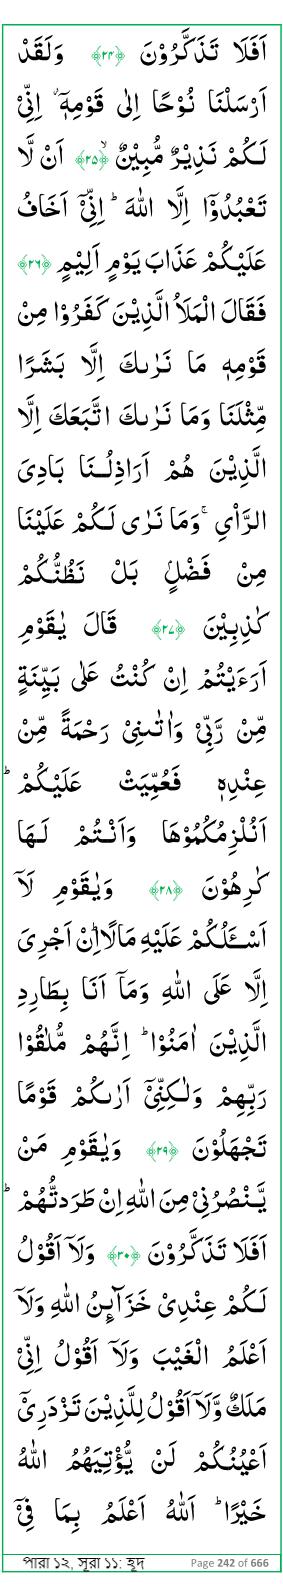 اَفَلَا تَذَكَّرُوْنَ ﴿۲۴﴾ وَلَقَدْ
اَرْسَلْنَا نُوْحًا اِلٰى قَوْمِهٖۤ ۙ اِنِّىْ
لَـكُمْ نَذِيْرٌ مُّبِيْنٌ ۙ ﴿۲۵﴾ اَنْ لَّا
تَعْبُدُوْۤا اِلَّا اللّٰهَ‌ ؕ اِنِّىْۤ اَخَافُ
عَلَيْكُمْ عَذَابَ يَوْمٍ اَلِيْمٍ ﴿۲۶﴾
فَقَالَ الْمَلَاُ الَّذِيْنَ كَفَرُوْا مِنْ
قَوْمِهٖ مَا نَرٰٮكَ اِلَّا بَشَرًا
مِّثْلَنَا وَمَا نَرٰٮكَ اتَّبَعَكَ اِلَّا
الَّذِيْنَ هُمْ اَرَاذِلُـنَا بَادِىَ
الرَّاْىِ‌ ۚ وَمَا نَرٰى لَـكُمْ عَلَيْنَا
مِنْ فَضْلٍۢ بَلْ نَظُنُّكُمْ
كٰذِبِيْنَ ﴿۲۷﴾ قَالَ يٰقَوْمِ
اَرَءَيْتُمْ اِنْ كُنْتُ عَلٰى بَيِّنَةٍ
مِّنْ رَّبِّىْ وَاٰتٰٮنِىْ رَحْمَةً مِّنْ
عِنْدِهٖ فَعُمِّيَتْ عَلَيْكُمْ ؕ
اَنُلْزِمُكُمُوْهَا وَاَنْـتُمْ لَـهَا
كٰرِهُوْنَ ﴿۲۸﴾ وَيٰقَوْمِ لَاۤ
اَسْــَٔلُكُمْ عَلَيْهِ مَالًاؕاِنْ اَجْرِىَ
اِلَّا عَلَى اللّٰهِ وَمَاۤ اَنَا بِطَارِدِ
الَّذِيْنَ اٰمَنُوْا‌ ؕ اِنَّهُمْ مُّلٰقُوْا
رَبِّهِمْ وَلٰـكِنِّىْۤ اَرٰٮكُمْ قَوْمًا
تَجْهَلُوْنَ ﴿۲۹﴾ وَيٰقَوْمِ مَنْ
يَّنْصُرُنِىْ مِنَ اللّٰهِ اِنْ طَرَدتُّهُمْ‌ ؕ
اَفَلَا تَذَكَّرُوْنَ ﴿۳۰﴾ وَلَاۤ اَقُوْلُ
لَـكُمْ عِنْدِىْ خَزَآٮِٕنُ اللّٰهِ وَلَاۤ
اَعْلَمُ الْغَيْبَ وَلَاۤ اَقُوْلُ اِنِّىْ
مَلَكٌ وَّلَاۤ اَقُوْلُ لِلَّذِيْنَ تَزْدَرِىْۤ
اَعْيُنُكُمْ لَنْ يُّؤْتِيَهُمُ اللّٰهُ
خَيْرًا‌ ؕ اَللّٰهُ اَعْلَمُ بِمَا فِىْۤ
পারা ১২, সূরা ১১: হূদ Page 242 of 666